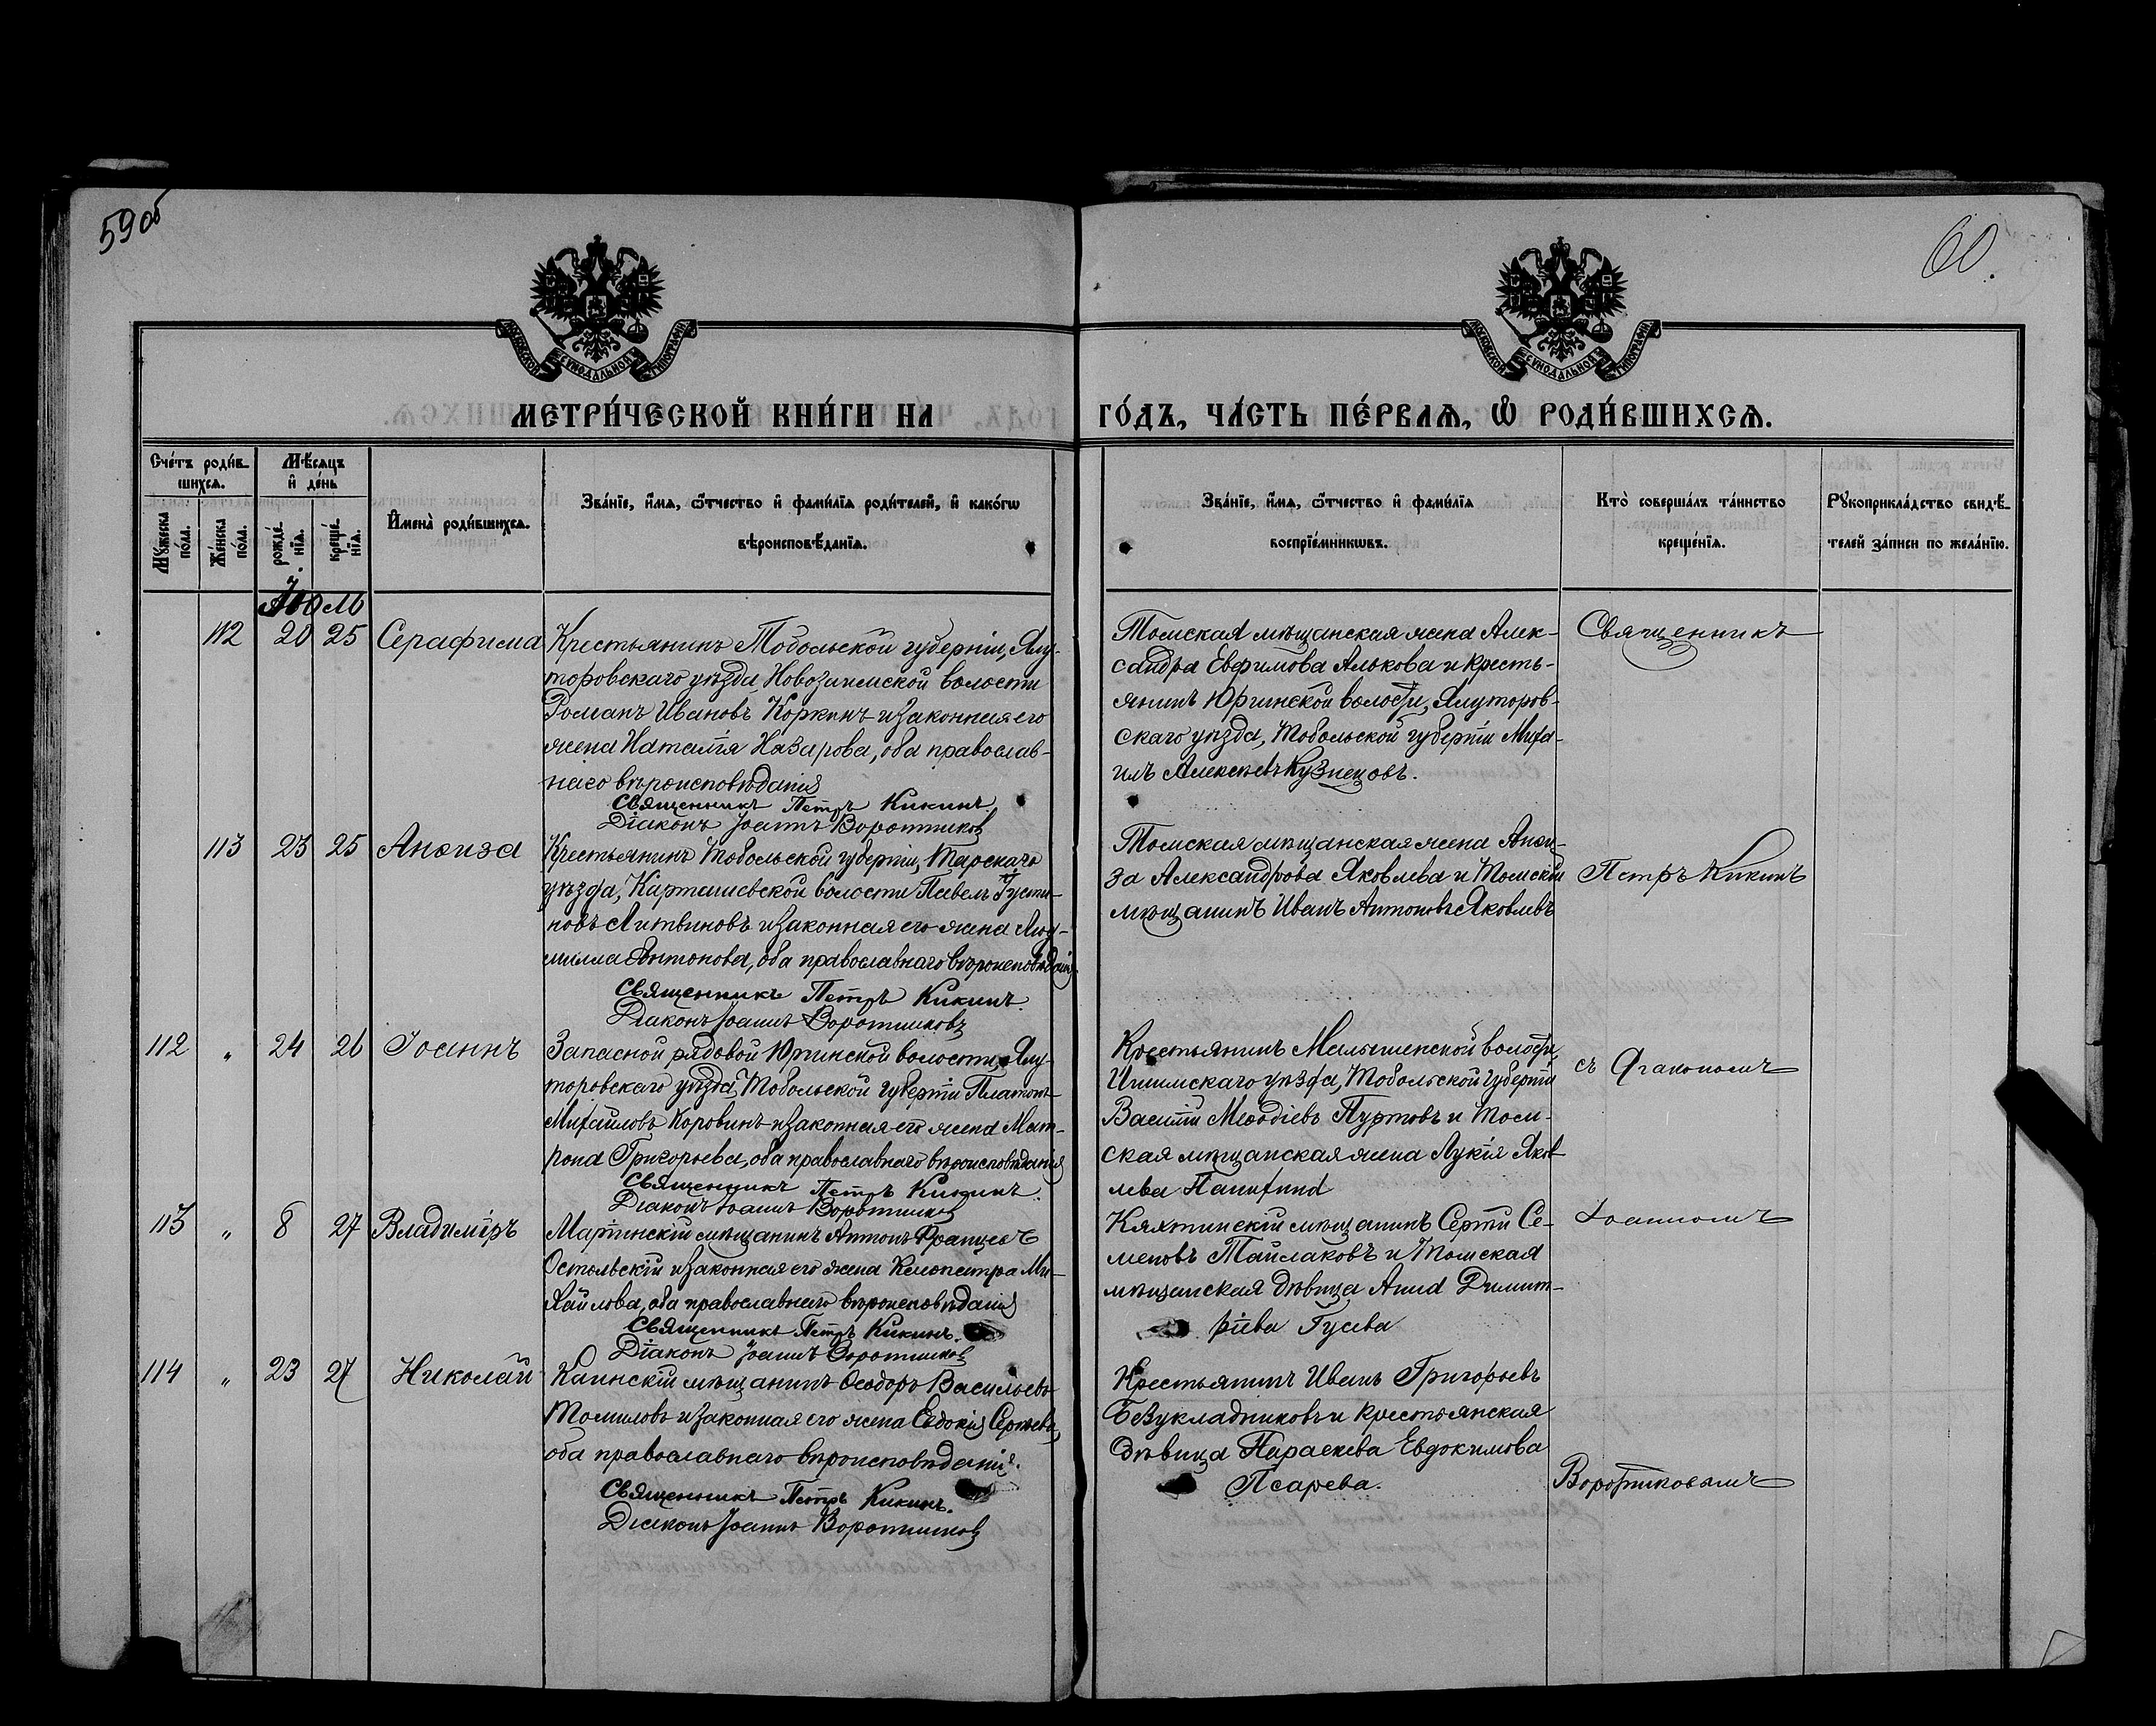 59об
60.
МОСКОВСКОЙ СѴНОДАЛЬНОЙ ТИПОГРАФІИ
МОСКОВСКОЙ СѴНОДАЛЬНОЙ ТИПОГРАФІИ
МЕТРИ́ЧЕСКОЙ КНИ́ГИ НА
ГО́ДЪ, ЧА́СТЬ ПЕ́РВАѦ, Ѽ РОДИ́ВШИХСѦ.
Сче́тъ роди́в-
шихсѧ.
Мꙋ́жеска по́ла.
Же́нска по́ла.
Мѣ́сѧцъ
и҆ де́нь
рожде́-
нїѧ.
креще́-
нїѧ.
И҆мена̀ роди́вшихсѧ.
Зва́нїе, и҆́мѧ, ѻ҆́тчество и҆ фами́лїѧ роди́телей, и҆ како́гѡ
вѣроисповѣ́данїѧ.
Зва́нїе, и҆́мѧ, ѻ҆́тчество и҆ фами́лїѧ
воспрїе́мникѡвъ.
Кто̀ соверша́лъ та́инство
креще́нїѧ.
Рꙋкоприкла́дство свидѣ́-
телей за́писи по жела́нїю.
Іюль
112 20 25 Серафима
Крестьянинъ Тобольской губерніи, Ялу-
торовскаго уѣзда, Новозаимской волости
Романъ Ивановъ Коркинъ и законная его
жена Наталія Назарова, оба православ-
наго вѣроисповѣданія
Священникъ Петръ Кикинъ.
Діаконъ Іоаннъ Воротниковъ
Томская мѣщанская жена Алек-
сандра Евфимова Алькова и кресть-
янинъ Юргинской волости, Ялуторов-
скаго уѣзда, Тобольской губерніи Миха-
илъ Алексѣевъ Кузнецовъ.
Священникъ
113 23 25 Анѳиза
Крестьянинъ Тобольской губерніи, Тарскаго
уѣзда, Карташевской волости Павелъ Густи-
новъ Литвиновъ и законная его жена Люд-
милла Антонова, оба православнаго вѣроисповѣданія.
Священникъ Петръ Кикинъ.
Діаконъ Іоаннъ Воротниковъ
Томская мѣщанская жена Анѳи-
за Александрова Яковлева и Томскій
мѣщанинъ Иванъ Антоновъ Яковлевъ
Петръ Кикинъ
112 " 24 26 Іоаннъ
Запасной рядовой Юргинской волости, Ялу-
торовскаго уѣзда, Тобольской губерніи Платонъ
Михайловъ Коровинъ и законная его жена Мат-
рона Григорьева, оба православнаго вѣроисповѣданія
Священникъ Петръ Кикинъ.
Діаконъ Іоаннъ Воротниковъ
Крестьянинъ Малышенской волости,
Ишимскаго уѣзда, Тобольской губерніи
Василій Меѳодіевъ Пуртовъ и Том-
ская мѣщанская жена Лукія Яков-
лева
съ Діакономъ
113 " 8 27 Владиміръ
Маріинскій мѣщанинъ Антонъ Францевъ
Остольскій и законная его жена Клеопатра Ми-
хайлова, оба православнаго вѣроисповѣданія
Священникъ Петръ Кикинъ.
Діаконъ Іоаннъ Воротниковъ
Кяхтинскій мѣщанинъ Сергій Се-
меновъ Тайлаковъ и Томская
мѣщанская дѣвица Анна Димит-
ріева Гусева
Іоанномъ
114 " 23 27 Николай
Каинскій мѣщанинъ Ѳеодоръ Васильевъ
Томиловъ и законная его жена Евдокія Сергѣева,
оба православнаго вѣроисповѣданія.
Священникъ Петръ Кикинъ.
Діаконъ Іоаннъ Воротниковъ
Крестьянинъ Иванъ Григорьевъ
Безукладниковъ и крестьянская
дѣвица Параскева Евдокимова
Псарева.
Воротниковымъ